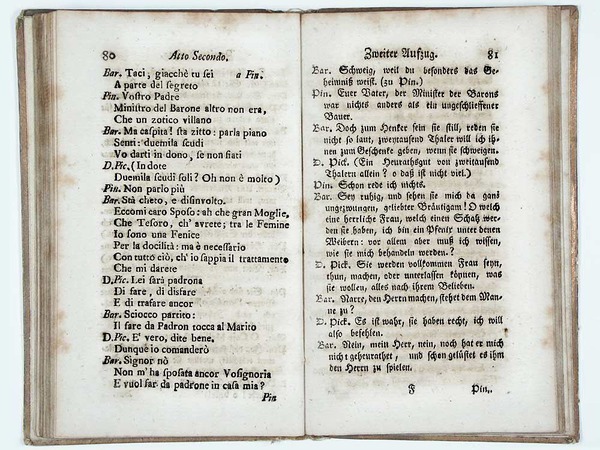 80 Atto Secondo.
Bar. Taci, giacchè tu sei a Pin.
A parte del segreto
Pin. Vostro Padre
Ministro del Barone altro non era,
Che un zotico villano
Bar. Ma caspita! sta zitto: parla piano
Senti: duemila scudi
Vo darti in dono, se non fiati
D.Pic. (In dote
Duemila scudi soli? Oh non è molto)
Pin. Non parlo più
Bar. Stà cheto, e disinvolto.
Eccomi caro Sposo: ah che gran Moglie,
Che Tesoro, ch' avrete; tra le Femine
Io sono una Fenice
Per la docilità: ma è necessario
Con tutto ciò, ch' io sappia il trattamento
Che mi darete
D.Pic. Lei sarà padrona
Di fare, di disfare
E di trafare ancor
Bar. Sciocco partito:
Il fare da Padron tocca al Marito
D.Pic. E' vero, dite bene.
Dunque io comanderò
Bar. Signor nò
Non m' ha sposata ancor Vosignoria
E vuol far da padrone in casa mia?
Pin
Zweiter Aufzug. 81
Bar. Schweig, weil du besonders das Ge-
heimniß weist. (zu Pin.)
Pin. Euer Vater, der Minister der Barons
war nichts anders als ein ungeschliffener
Bauer.
Bar. Doch zum Henker sein sie still, reden sie
nicht so laut, zweytausend Thaler will ich ih-
nen zum Geschenke geben, wenn sie schweigen.
D. Pick. (Ein Heurathsgut von zweitausend
Thalern allein? o daß ist nicht viel.)
Pin. Schon rede ich nichts.
Bar. Sey ruhig, und sehen sie mich da ganz
ungezwungen, geliebter Bräutigam! O welch
eine herrliche Frau, welch einen Schatz wer-
den sie haben, ich bin ein Phenix unter denen
Weibern: vor allem aber muß ich wissen,
wie sie mich behandeln werden.?
D. Pick. Sie werden vollkommen Frau seyn,
thun, machen, oder unterlassen können, was
sie wollen, alles nach ihrem Belieben.
Bar. Narre, den Herrn machen, stehet dem Man-
ne zu?
D. Pick. Es ist wahr, sie haben recht, ich will
also befehlen.
Bar. Nein, mein Herr, nein, noch hat er mich
nicht geheurathet, und schon gelüstet es ihm
den Herrn zu spielen.
F Pin.